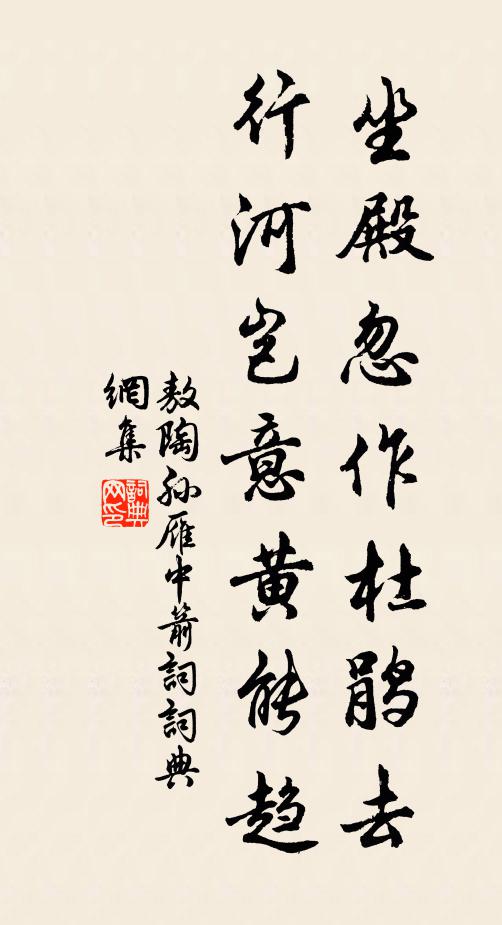 坐殿忽作杜鹃去
行河岂意黄能趋
敖陶孙雁中箭詞詞典
網集
詞典
网印